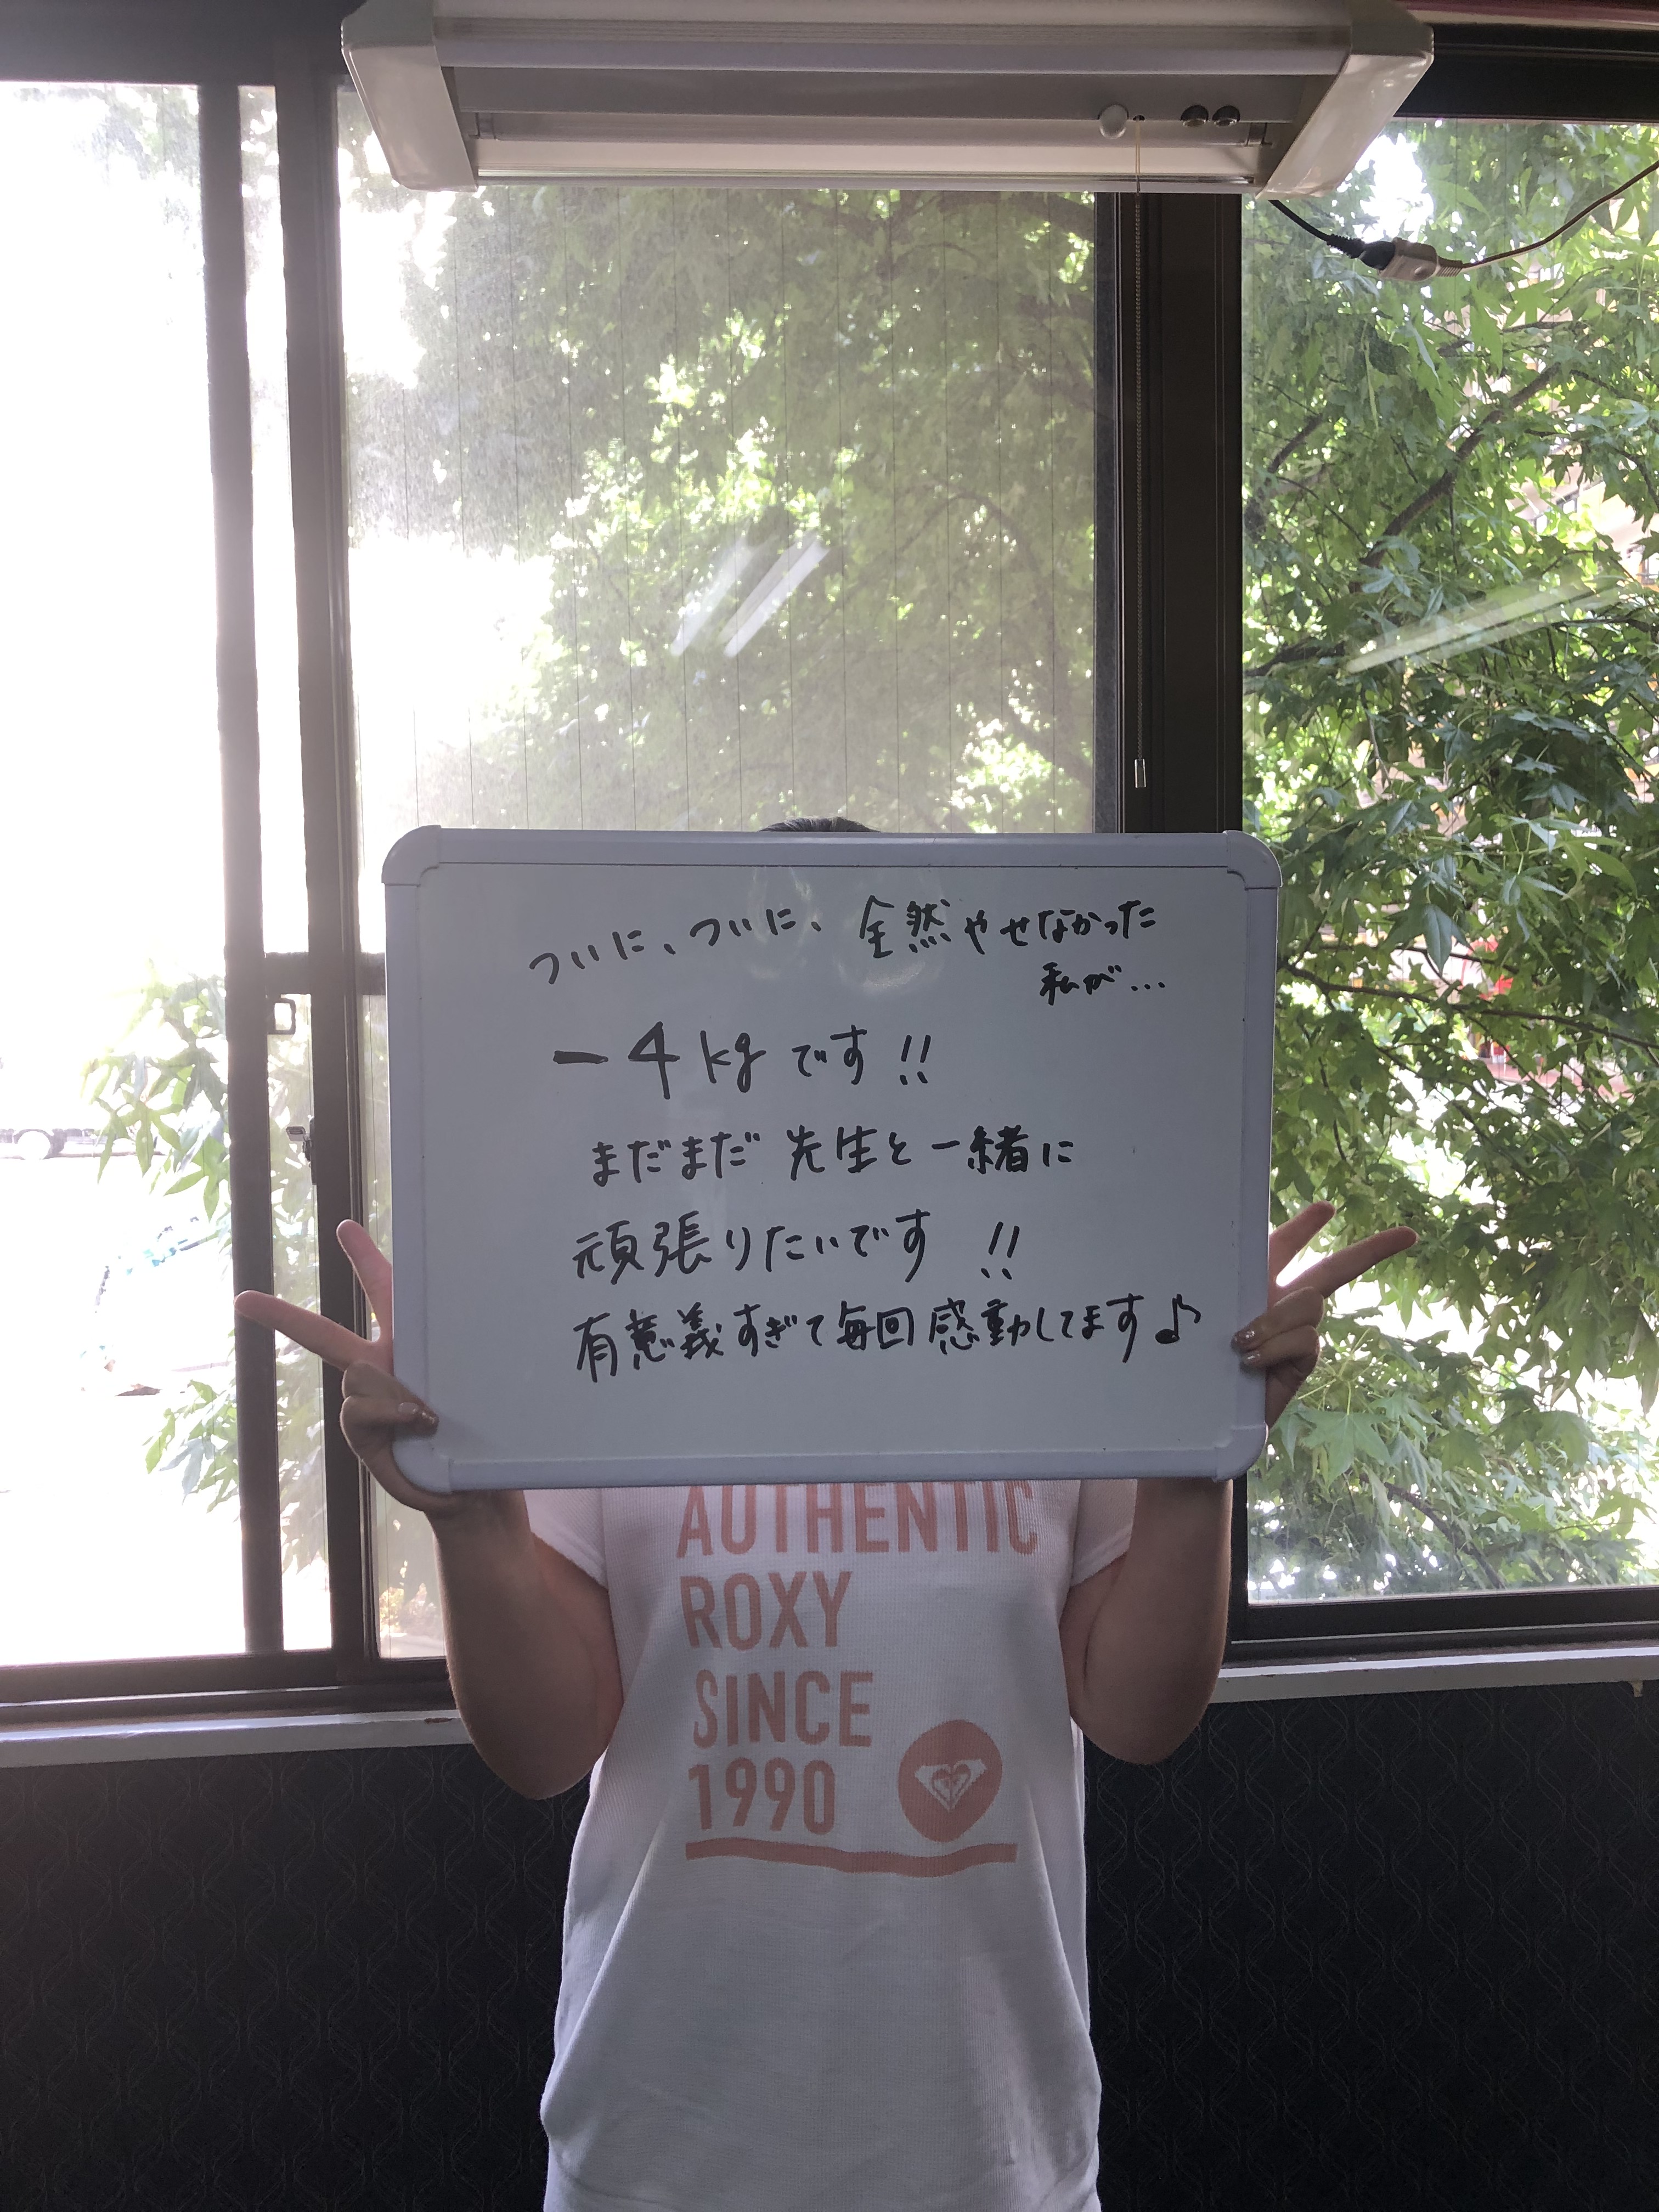 ついに、ついに、全然やせなかった
私が...
-4kgです!!
まだまだ先生と一緒に
頑張りたいです!!
有意義すぎて毎回感動してます♪
AUTHENTIC
ROXY
SINCE
1990